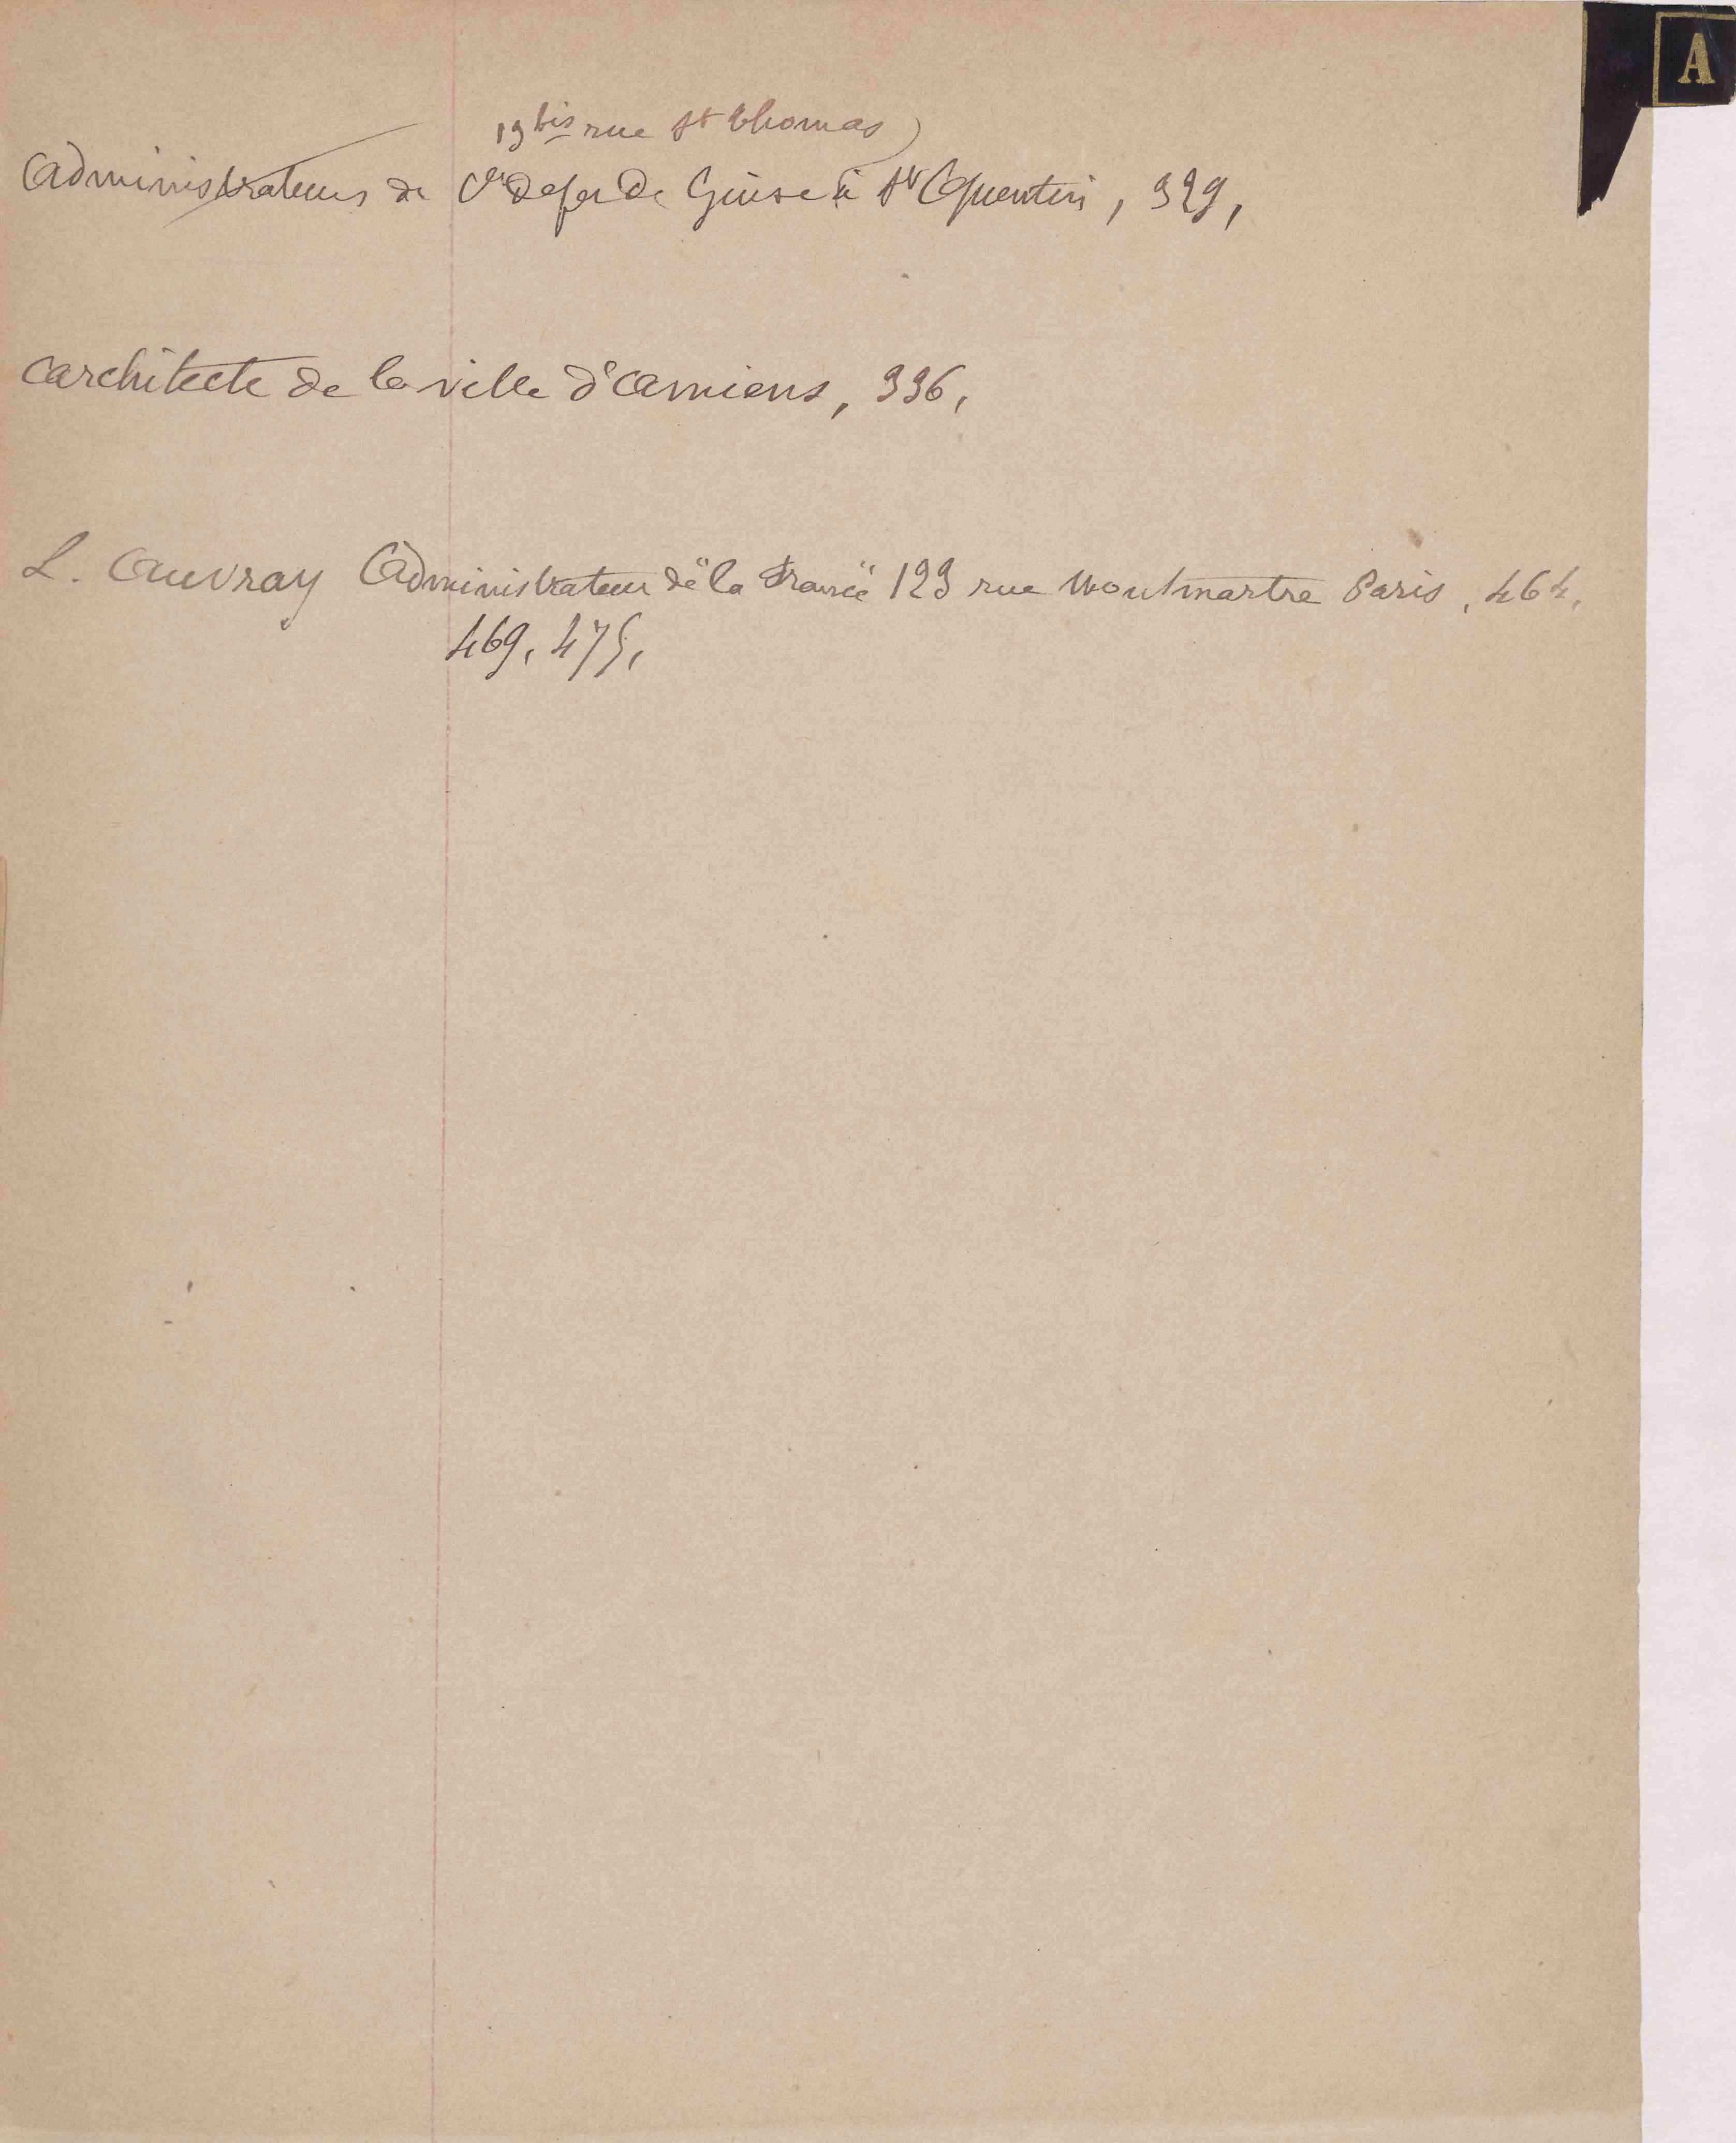 A
19 bis rue St Thomas
Administrateurs de Cin de fer de Guise à St Quentin, 329,
architecte de la ville d'Amiens, 336,
L. Auvray Administrateur de "la France" 123 rue Montmartre Paris, 464,
469, 475,